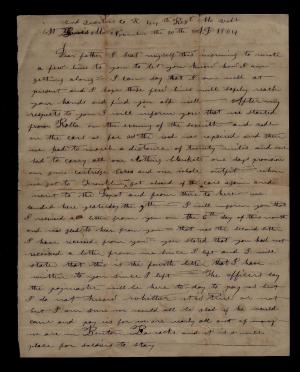 Head Quarters Co K 49th Regt Mo Vols
St Louis Mo November the 10th AD 1864
Dear father I seat myself this morning to write
a few lines to you to let you know how I am
getting along I can say that I am well at
present and I hope these few lines will safely reach
your hands and find you all well After my
respects to you I will inform you that we started
from Rolla on the evening of the and rode
on the cars as far as the rod was repaired and then
we had to march a distance of twenty miles and we
had to carry all our clothing blankets one days provision
our cartridge boxes and our whole outfit when
we got to Franklin we got aboard of the cars again and
went to the and from there to here we
landed here yesterday the 9th I will inform you that
I received a letter from you the 6th day of this month
and was glad to hear from you that was the second letter
I have received from you you stated that you had not
received a letter from me since I left and I will
state that this is the fourth letter that I have
written to you since I left The officers say
the paymaster will be here to day to pay us but
I do not know whether it is true or not
but I am sure we would all be glad if he would
come and pay us for we are nearly all out of money
we are in Benton Barracks and it is a nice
place for soldiers to stay